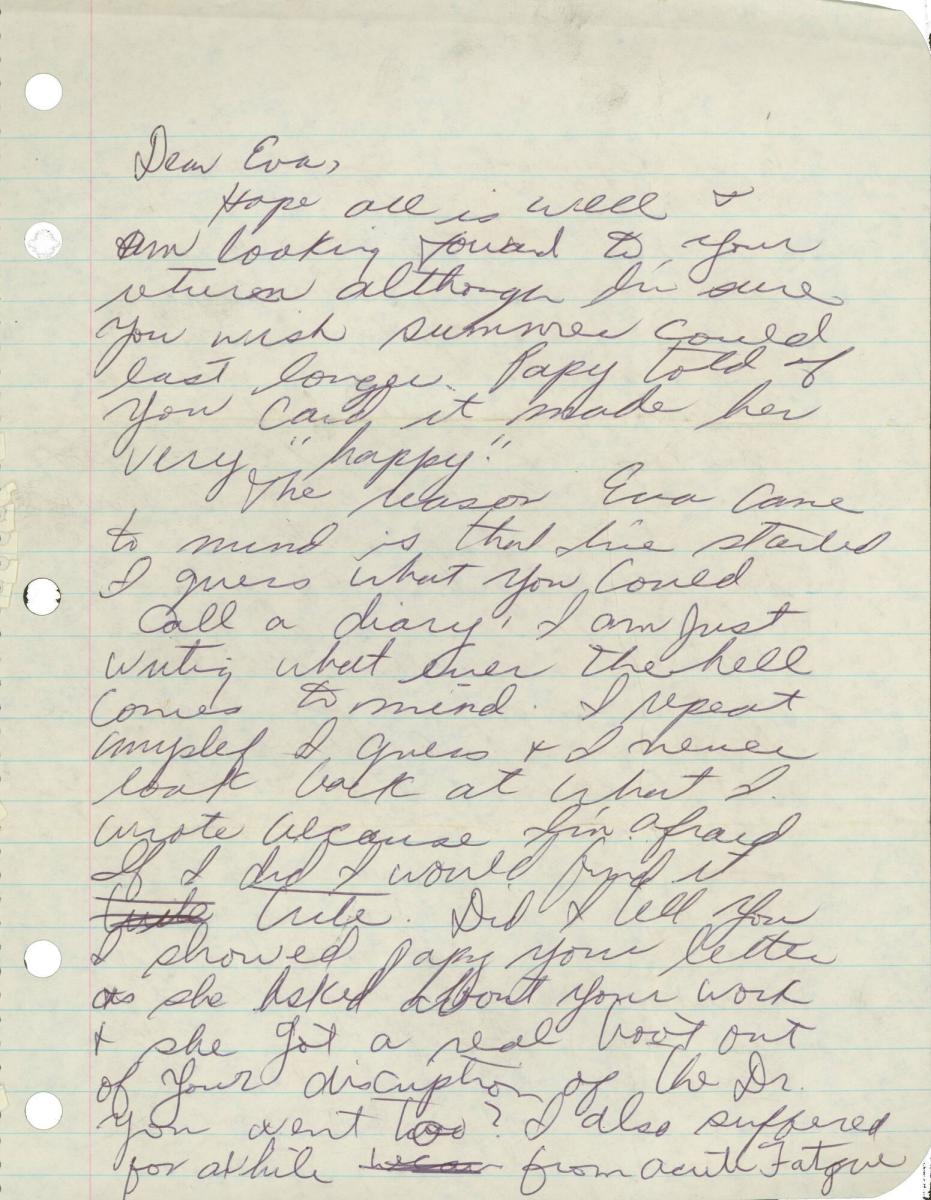 Dear Eva,
Hope all is well &
am looking foward to your
return although I'm sure
you wish summer could
last longer. Papy told of
your card it made her
very "happy."
The reason Eva came
to mind is that I've started
I guess what you could
call a diary, I am just
writing what ever the hell
comes to mind. I repeat
myslef I guess & I never
look back at what I
wrote because I'm afraid
If I did I would find it
trite. Did I tell you
I showed Papy your letter
as she asked about your work
& she got a real boot out
of your discription of the Dr.
you went too? I also suffered
for awhile from acute Fatgue